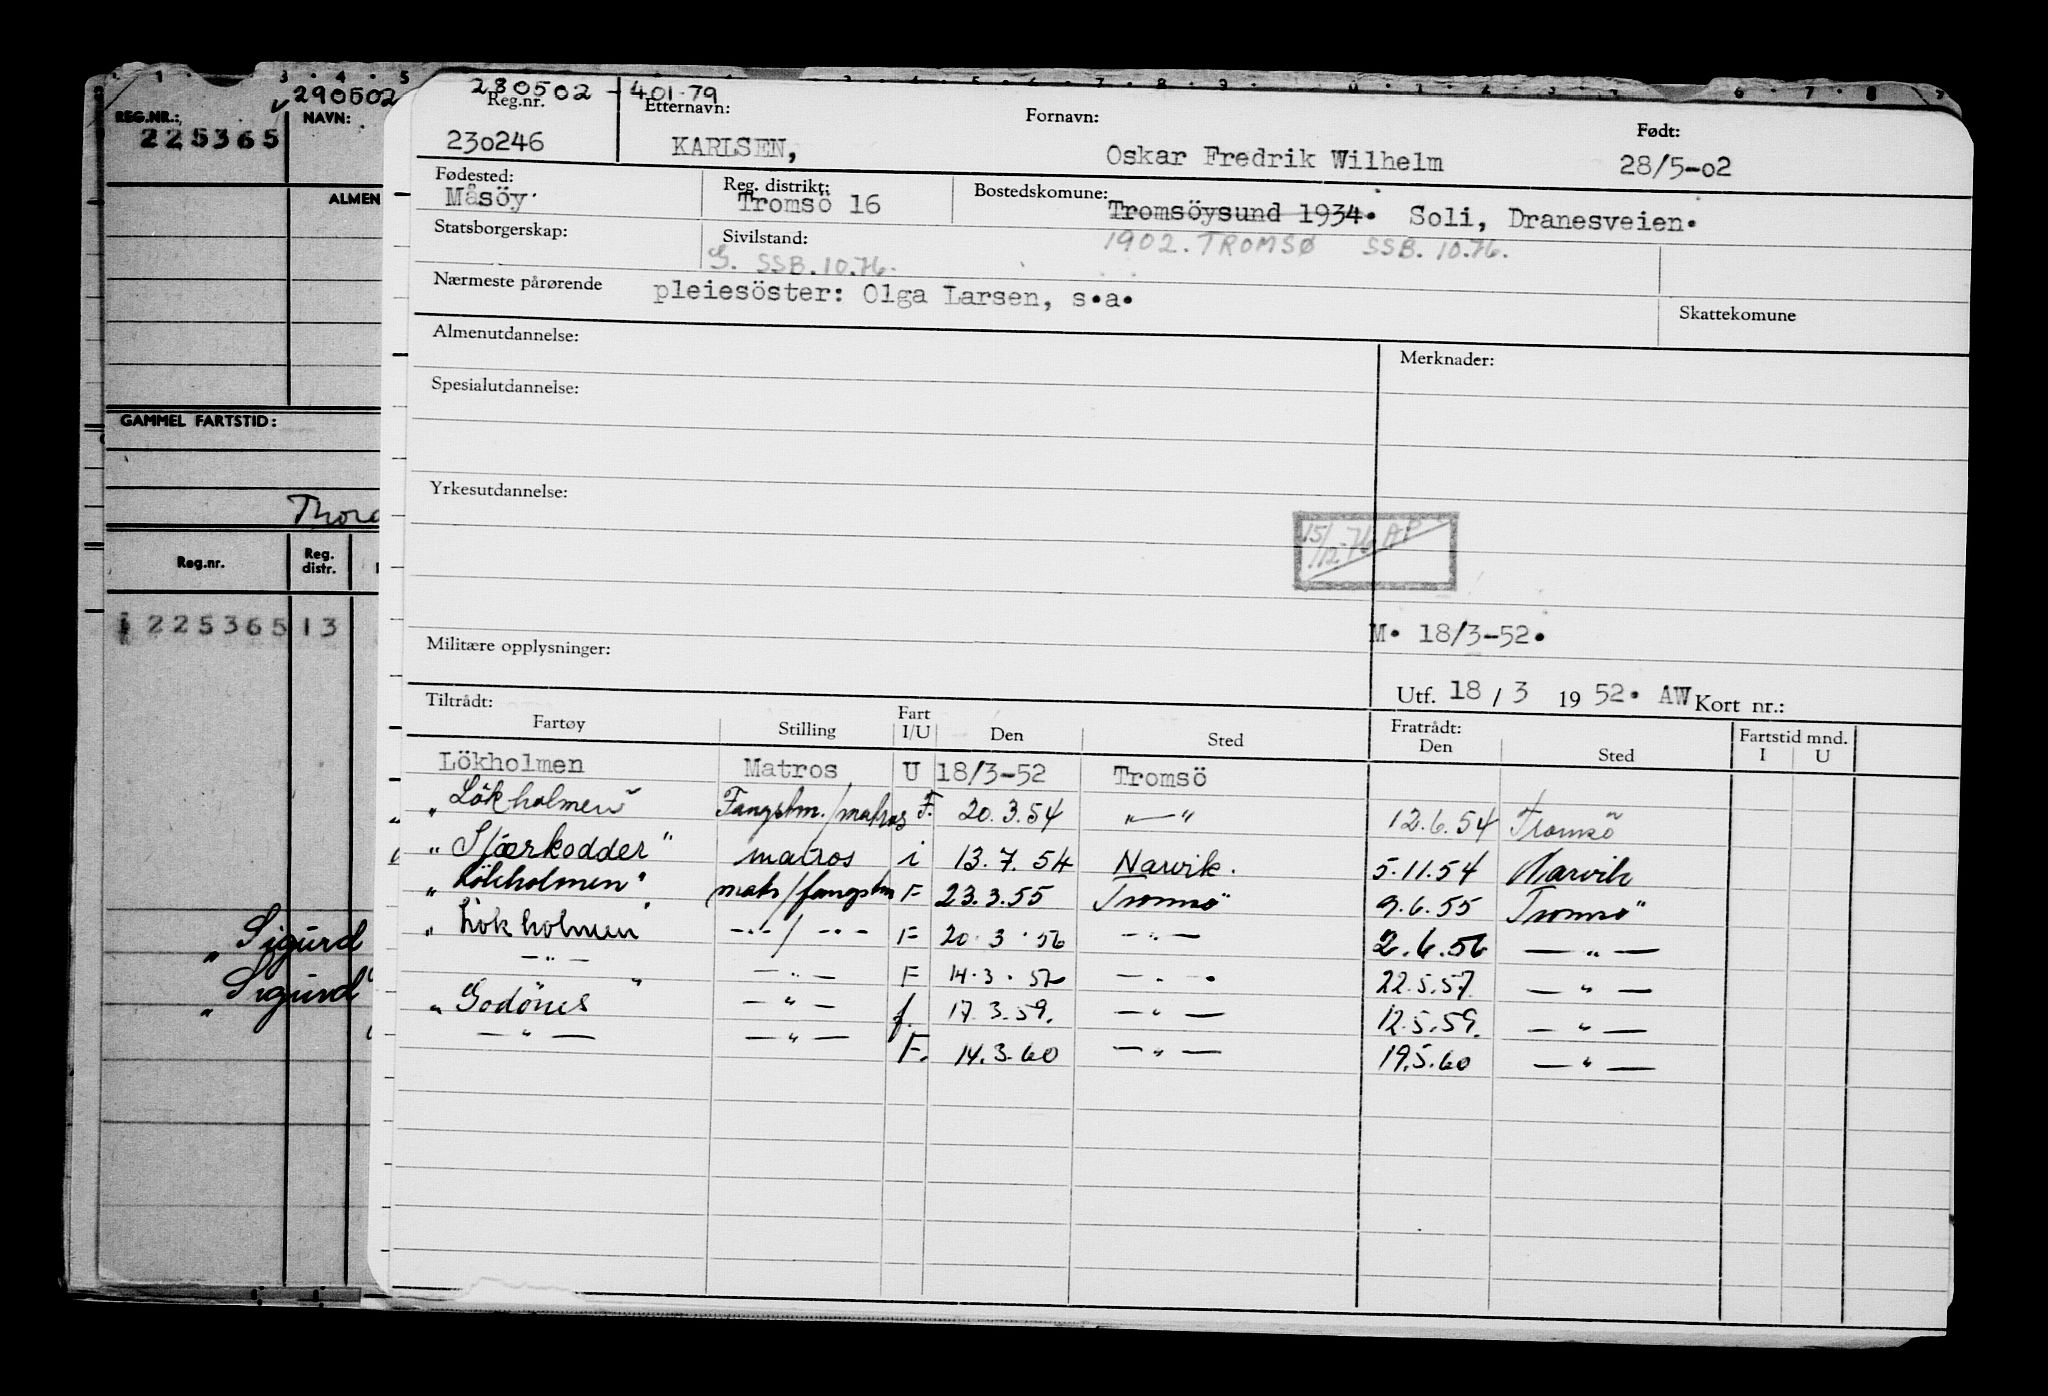 290502
REG.NR.: NAVN:
225365
ALMEN
GAMMEL FARTSTID:
Reg.nr. Reg. distr.
225365 13
„Sigurd
„Sigurd"
280502 - 401.79
Reg.nr. Etternavn: Fornavn: Født:
230246 KARLSEN, Oskar Fredrik Wilhelm 28/5-02
Fødested: Reg. distrikt: Bostedskomune:
Måsöy. Tromsö 16 Tromsöysund 1934. Soli, Dranesveien.
Statsborgerskap: Sivilstand: 1902. TROMSØ SSB. 10.76.
G. SSB. 10.76.
Nærmeste pårørende pleiesöster: Olga Larsen, s.a.
Skattekomune
Almenutdannelse: Merknader:
Spesialutdannelse:
Yrkesutdannelse:
15/12-76 AP
M. 18/3-52.
Militære opplysninger:
Utf. 18 / 3 1952. AW Kort nr.:
Tiltrådt: Fratrådt: Fartstid mnd.
Fartøy Stilling Fart I/U Den Sted Den Sted I U
Lökholmen Matros U 18/3-52 Tromsö
„Lökholmen" Fangstm./matros F. 20.3.54 „—" 12.6.54 Tromsö
„Stærkodder" matros i 13.7.54 Narvik. 5.11.54 Narvik
„Lökholmen" matr/fangstm F 23.3.55 Tromsö 9.6.55 Tromsö
„Lökholmen" -"-/-"- F 20.3.56 -"- 2.6.56 — " —
-"- -"- F 14.3.57 -"- 22.5.57. — " —
„Godönes" — " — f. 17.3.59. — " — 12.5.59. — " —
— " — — " — F. 14.3.60 — " — 19.5.60 — " —